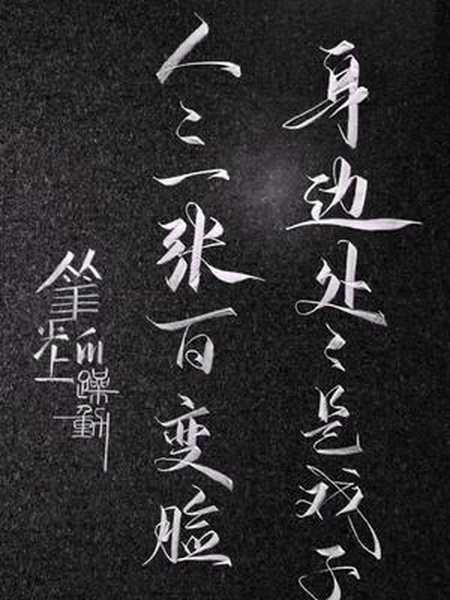 身边处〻是戏子
人〻一张百变脸
筆尖上的躁動